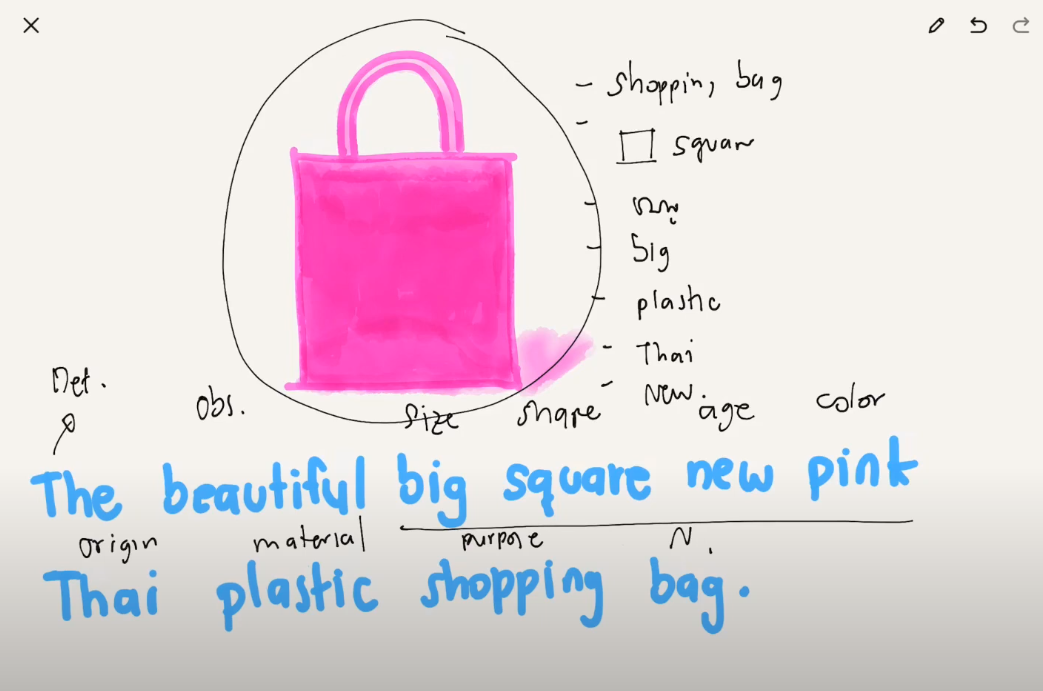 shoppin, bag
square
ชมพู
big
plastic
Thai
New.
Det.
Obs. size shape age color
The beautiful big square new pink
origin material purpose N.
Thai plastic shopping bag.